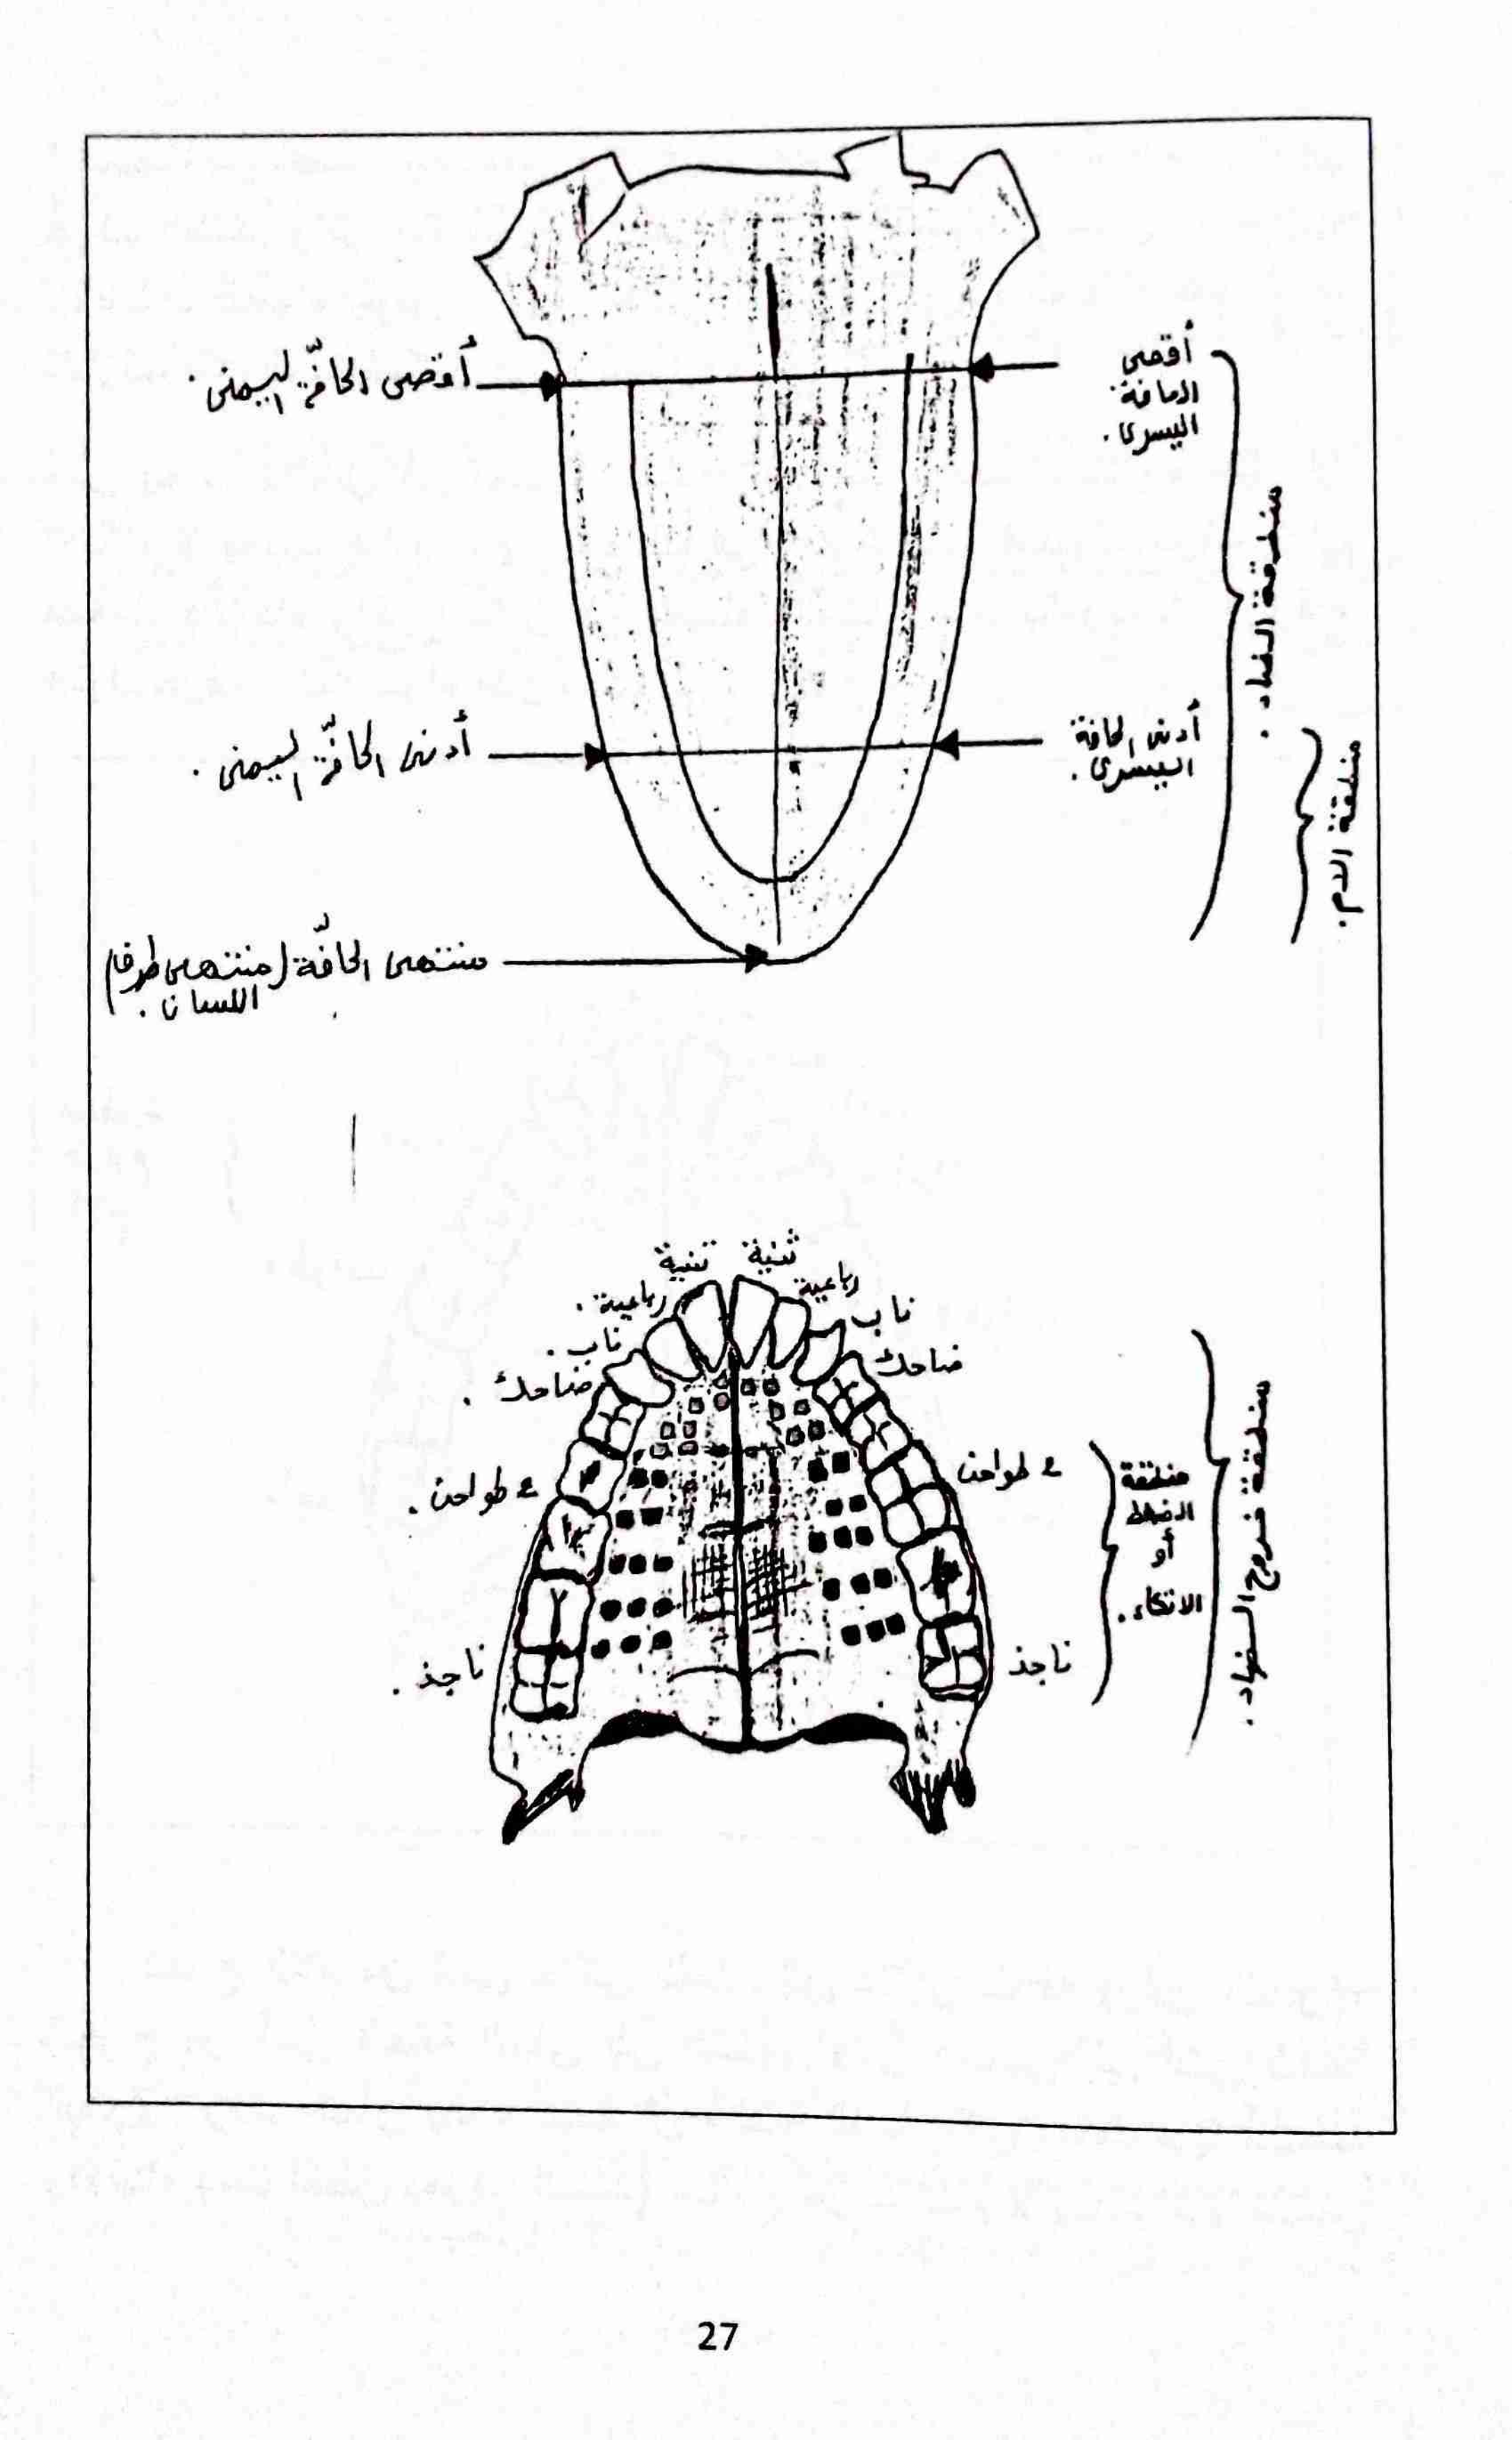 أقصى الحافّة اليمنى.
أقصى
الحافة
اليسرى.
منطقة الضاد.
أدنى الحافّة اليمنى.
أدنى الحافة
اليسرى.
منطقة اللام.
منتهى الحافّة (منتهى طرف
اللسان.)
ثنية ثنية
رباعية رباعية.
ناب ناب.
ضاحك ضاحك.
طواحن ٤ طواحن.
ناجذ ناجذ.
منطقة
الضغط
أو
الاتكاء.
منطقة خروج الضاد.
27